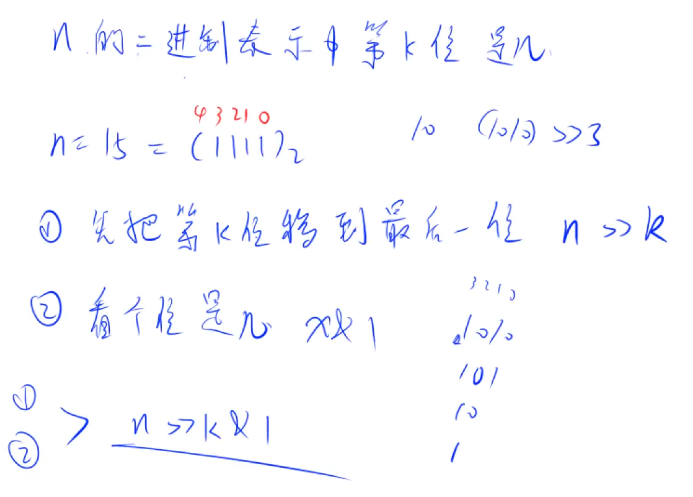 n 的二进制表示中第k位是几
4 3 2 1 0
n = 15 = (1111)₂ 10 (1010) >> 3
① 先把第k位移到最后一位 n >> k
② 看个位是几 x & 1
3 2 1 0
1010
101
10
1
①
② > n >> k & 1